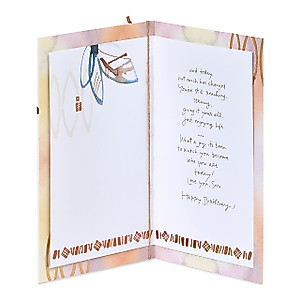 and today,
not much has changed.
You're still reaching,
striving,
giving it your all,
just enjoying life.
What a joy it's been
to watch you become
who you are
today!
Love you, Son
Happy Birthday!